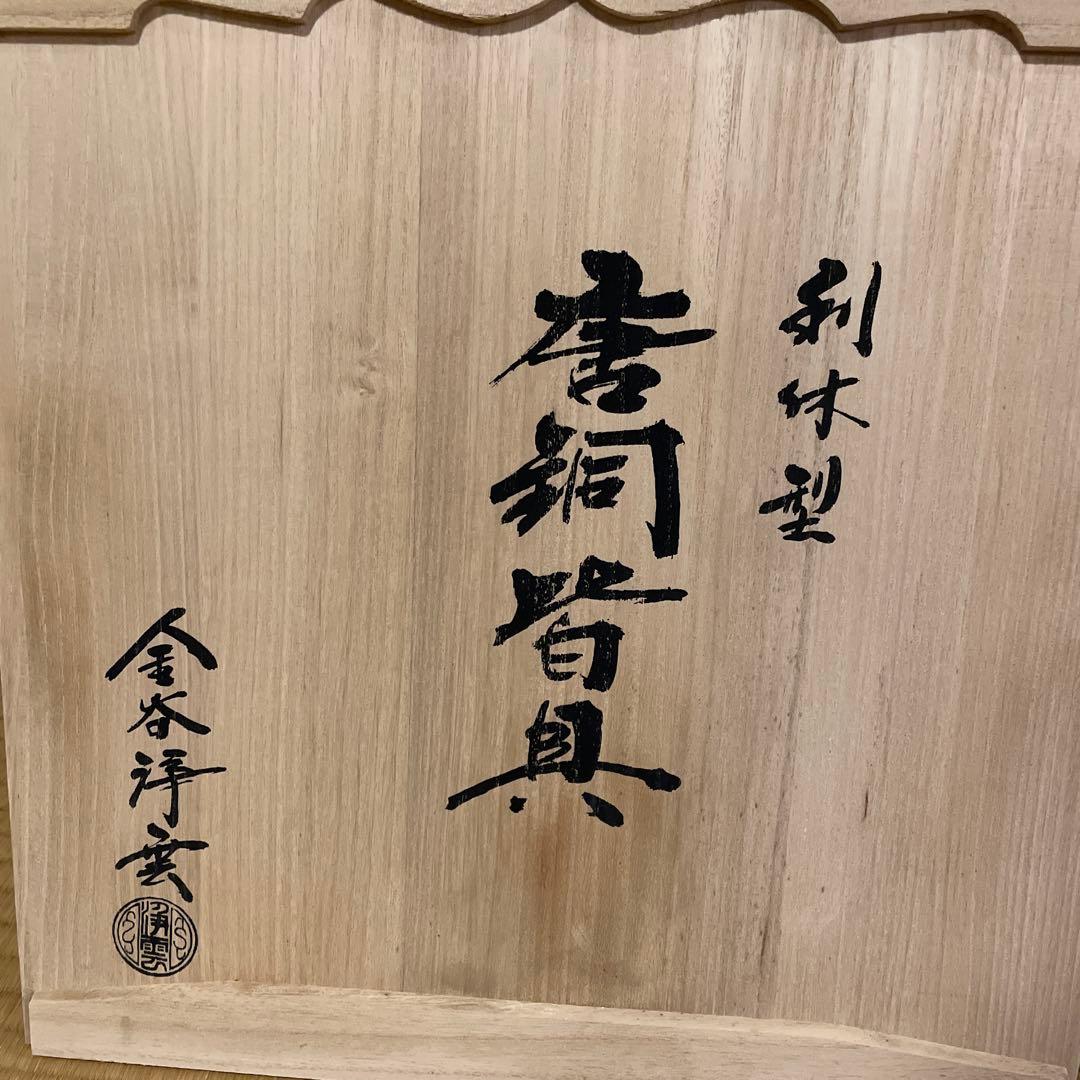 利休型
唐銅皆具
金谷浄雲
浄雲